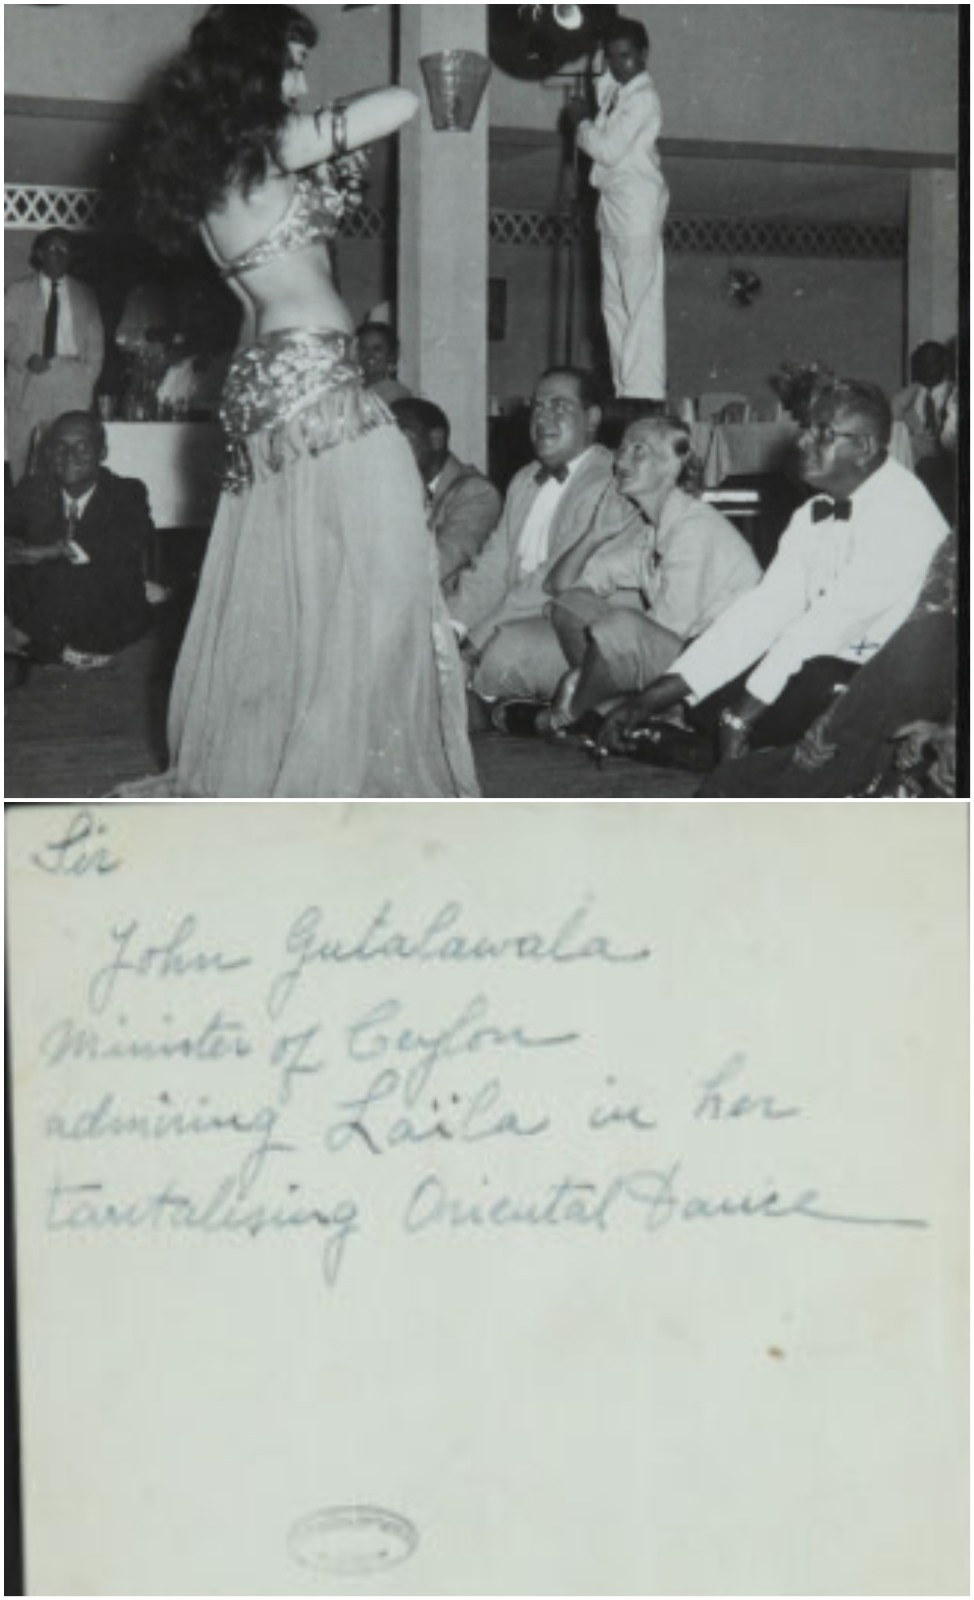 Sir
John Gutalawala
Minister of Ceylon
admiring Laïla in her
tantalising Oriental Dance